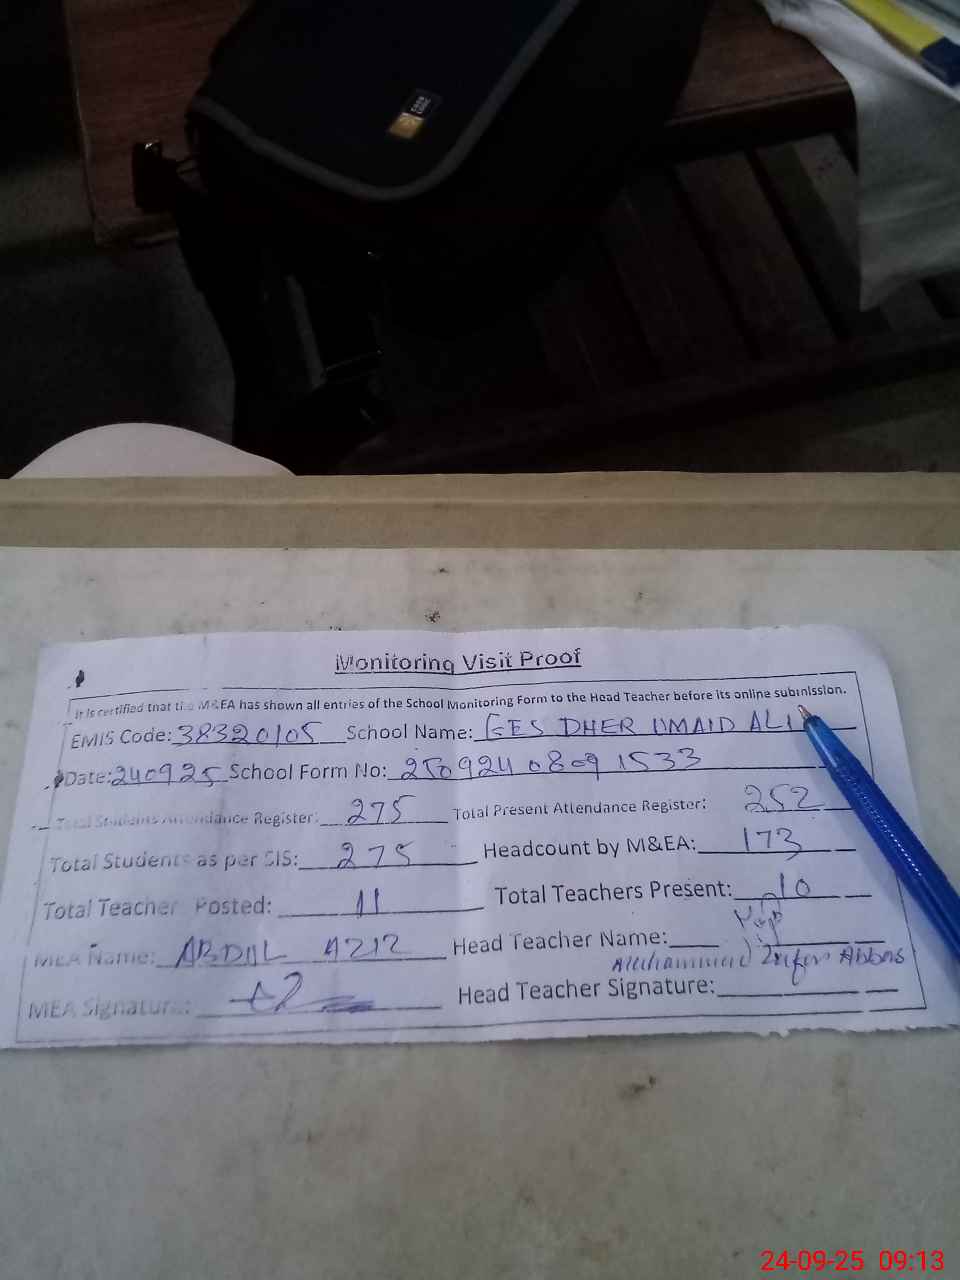 CASE LOGIC
Monitoring Visit Proof
It is certified that the M&EA has shown all entries of the School Monitoring Form to the Head Teacher before its online submission.
EMIS Code: 38320105 School Name: GES DHER UMAID ALI
Date: 240925 School Form No: 2509240809 1533
Total Students Attendance Register: 275 Total Present Attendance Register: 252
Total Students as per SIS: 275 Headcount by M&EA: 173
Total Teacher Posted: 11 Total Teachers Present: 10
MEA Name: ABDUL AZIZ Head Teacher Name:
Muhammad Zafar Abbas
MEA Signature: Head Teacher Signature:
24-09-25 09:13